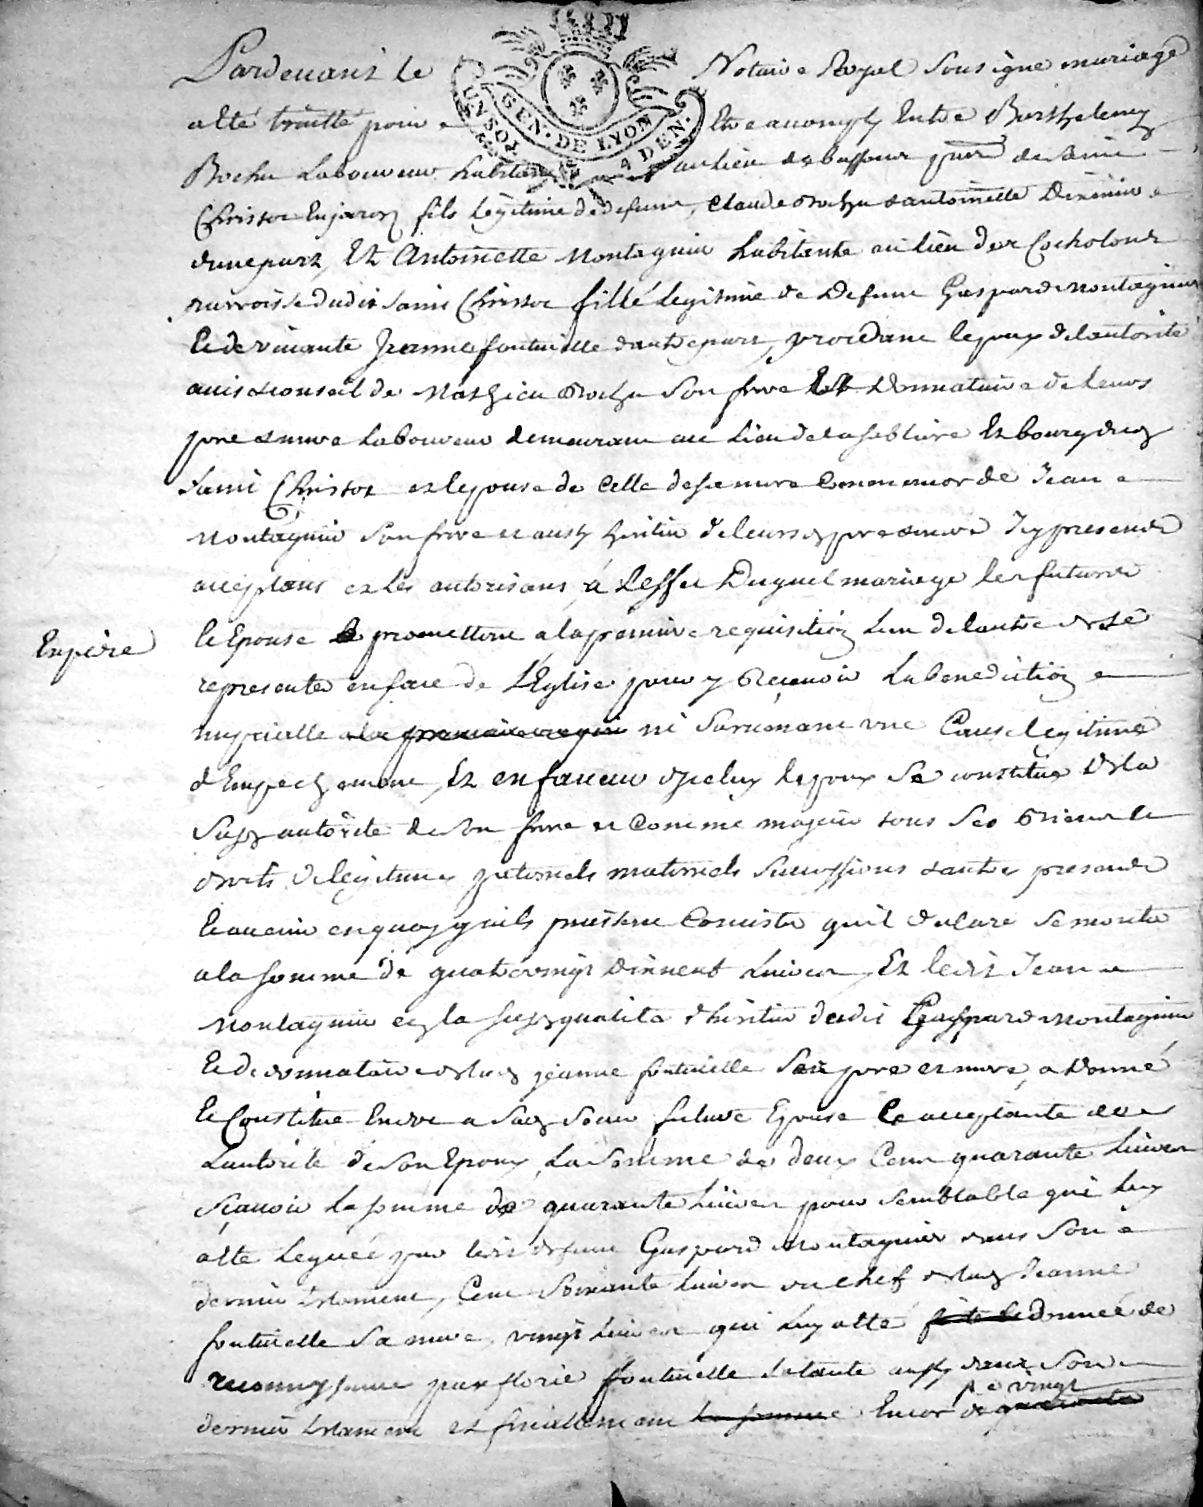 Pardevant le Notaire Royal Sousigné mariage
a été traitté pour Etre accomply Entre Barthelemy
GEN. DE LYON
UN SOL 4 DEN.
Rochu Laboureur habitant au lieu de de Saint
Christo En jarez fils légitime de defunt Claude Rochu & antoinette
dune part, Et Antoinette Montagnier habitante au lieu der
parroisse dudit Saint Christoz fille legitime de Defunt Gaspard Montagnier
Et de vivante Jeanne fontvielle dautre part, procedant lepoux de lautorité
avis & conseil de Mathieu Rochu Son frere Et Donnataire de leurs
pere & mere Laboureur demeurant au Lieu de la Et bourg dud
Saint Christoz et lepouse de Celle de sa mere Comm encor de Jean
Montagnier Son frere et aussy heritier de leurs pere & mere Icy presents
acceptans et les autorisans, à Leffet Duquel mariage les futurs
Enpere
Et Epouse promettent a la premiere requisition Lun de lautre de se
representer en face de LEglise pour y Recevoir La benediction
nuptielle a la premiere requi ni Survenant une Cause legitime
dEmpechement, Et en faveur dyceluy lepoux se constitue de la
Susd autorité de son frere et Comme majeur tous Ses biens
droits de legitimes paternels maternels Successions & autres presents
Et avenir en quoy quils puissent Consister quil declare se monter
a la somme de quatre vingt dixneuf Livres, Et ledit Jean
Montagnier en la susd qualité dheritier dudit Gaspard Montagnier
Et de donnataire de lad jeanne fontvielle Son pere et mere, a Donné
Et Constitué Envers a Sad Soeur future Epouse Ce acceptante de
Lautorité de Son Epoux, La Somme de deux Cent quarante Livres
Sçavoir La somme de quarante Livres pour semblable qui luy
a été Leguée par ledit defunt Gaspard Montagnier dans Son
dernier testament, Cent Soixante Livres du chef de lad Jeanne
fontvielle Sa mere, vingt Livres qui Luy a été donnée de
reconnoissance par florie fontvielle Sa tante aussy dans Son
dernier testament et finallement la somme Encor de quarante
de vingt